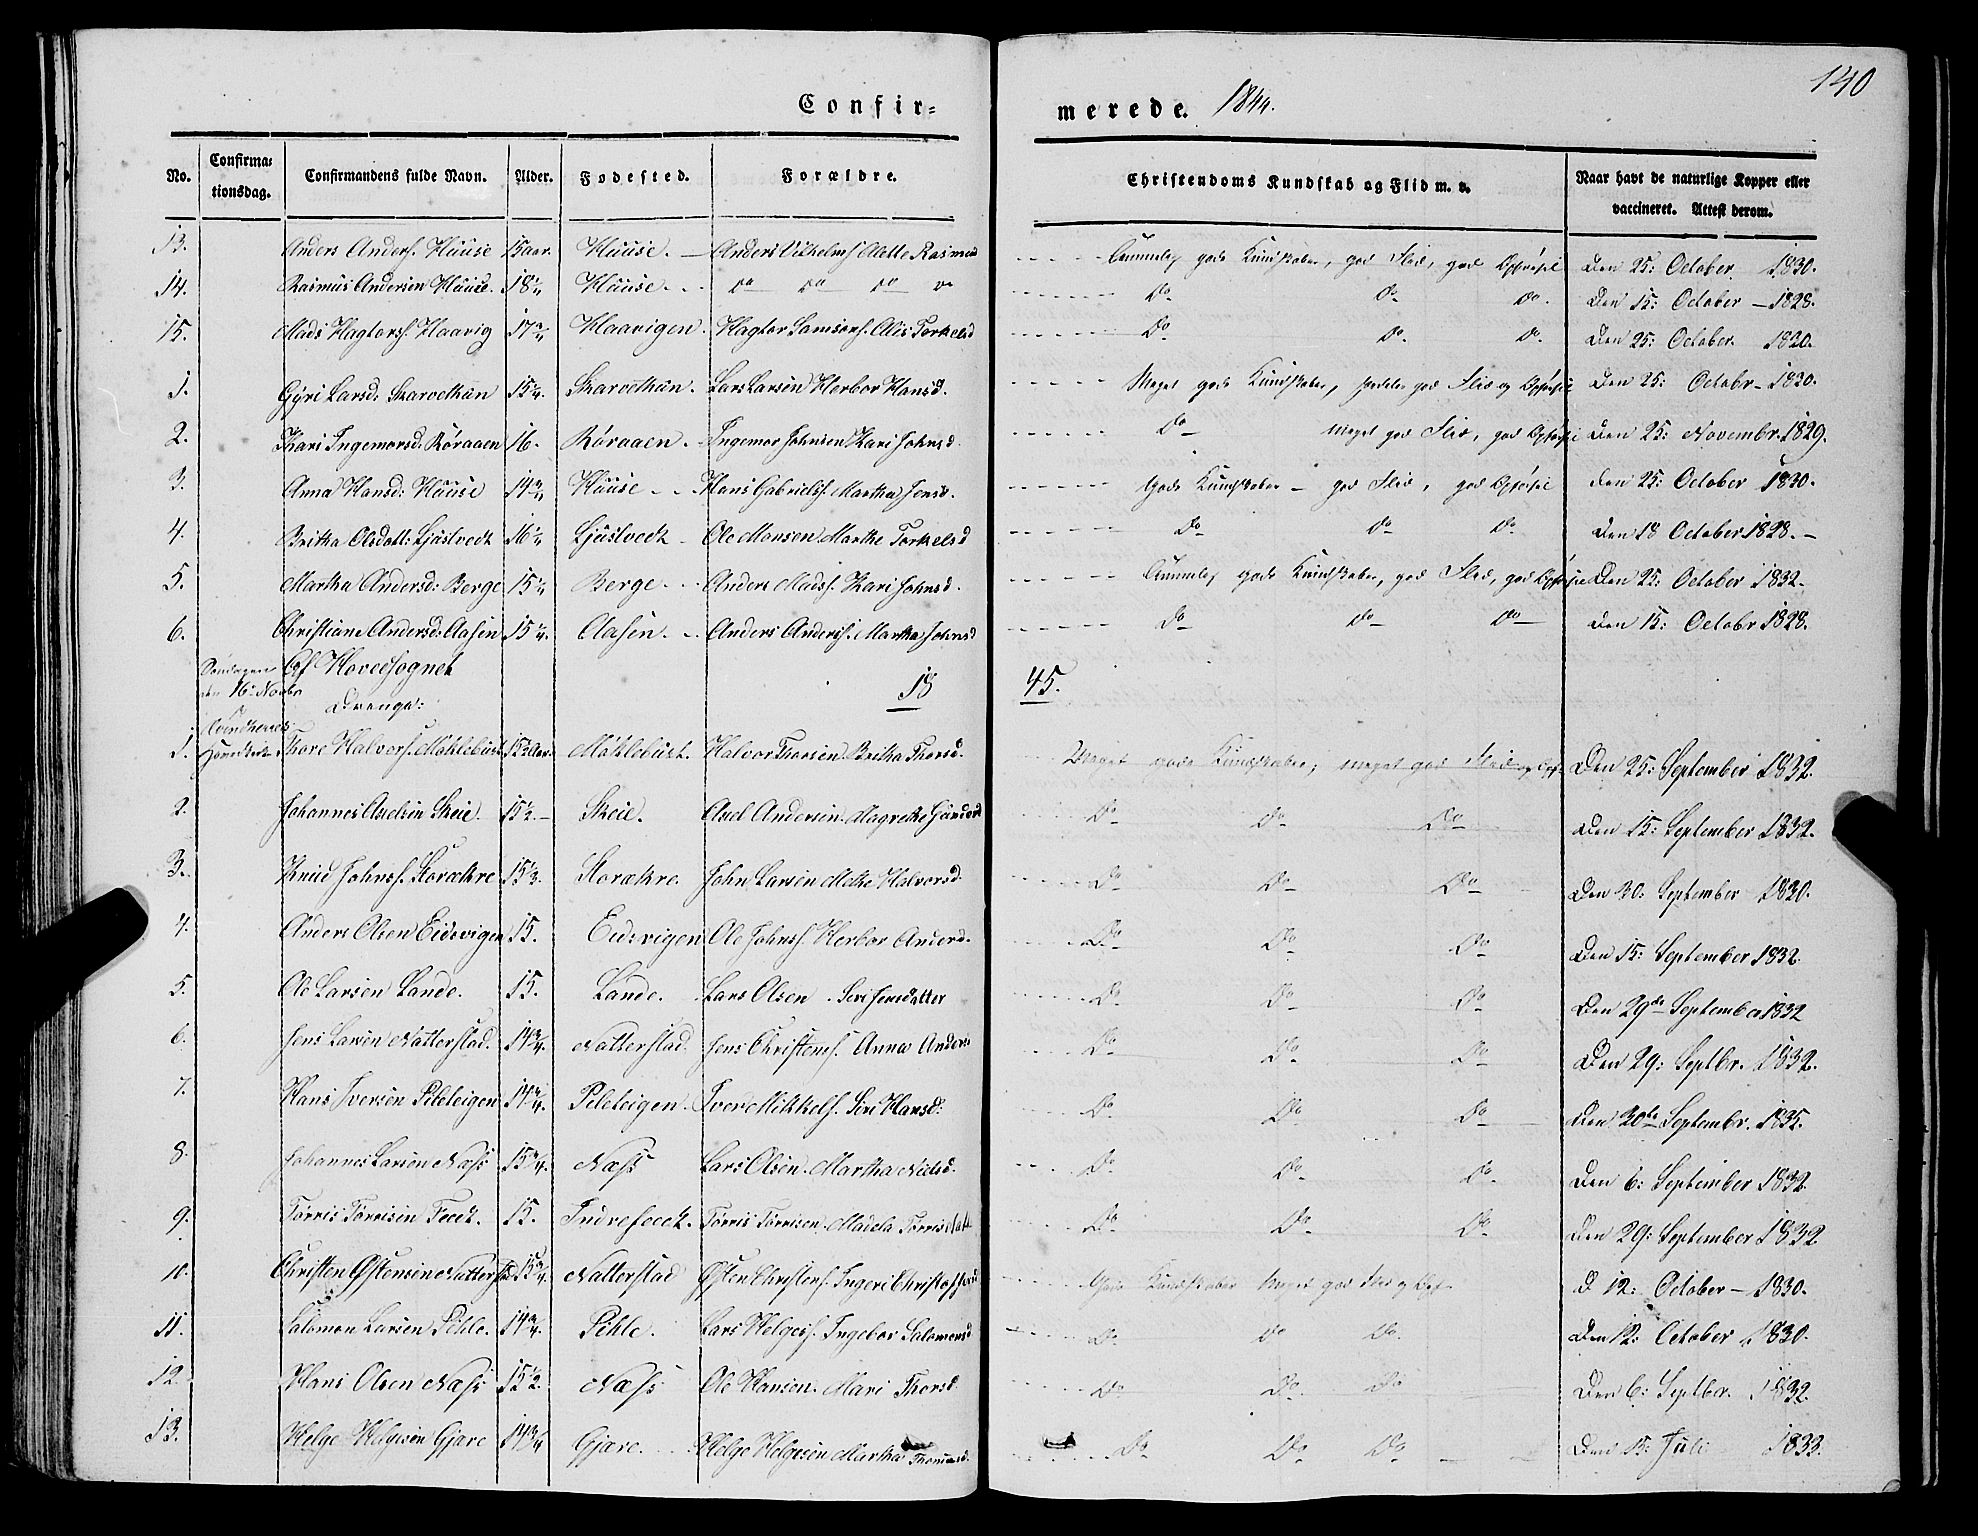 Confir=
merede. 1844.
140
No. Confirma=tionsdag. Confirmandens fulde Navn. Alder. Fødested. Forældre. Christendoms Kundskab og Flid m. v. Naar havt de naturlige Kopper eller vaccineret. Attest derom.
13. Anders Anders. Huuse 15 aar. Huuse. Anders Vilhelms. Mette Rasmusd gode Kundskaber, god Flid, god Den 25: October 1830.
14. Rasmus Andersen Huuse. 18 Huuse do do do do Do Do Do. Den 15: October 1828.
15. Mads Hagtors. Haavig 17 Haavigen. Hagtor Samsons. Torkelsd Do Do. Do. Den 25: October 1830.
1. Gyri Larsd: Skarvethun 15 1/4. Skarvethun. Lars Larsen Herbor Hansd. Meget gode Kundskaber, god Flid og Den 25: Octobr 1830.
2. Kari Ingemorsd: Røraaen 16. Røraaen. Ingemor Johnsen Kari Johnsd. Do meget god Flid, god Den 25: Novembr. 1829.
3. Anna Hansd: Huuse 14 3/4 Huuse Hans Gabriels. Martha Jensd. Gode Kundskaber god Flid, god Den 25: October 1830.
4. Britha Olsdatt: Ljustvedt 16 Ljustvedt Ole Monsen Marthe Torkelsd Do Do Do Den 18 October 1828.
5. Martha Andersd: Berge 15 Berge Anders Mads. Kari Johnsd. gode Kundskaber, god Flid, god Den 25: October 1832.
6. Christiane Andersd: Aasen 15 1/4. Aasen. Anders Anders. Martha Johnsd Do Do Do Den 15: Octobr 1828.
Søndagen Af Hovedsognet
den 16 Novbr Drenge: 18 45.
1. Thore Halvors. Møklebust 15 1/2 Aar Møklebust. Halvor Thorsen. Britha Thorsd. Meget gode Kundskaber, meget god Flid og Den 25: September 1832.
2. Johannes Axelsen Skeie. 15 1/2 Skeie. Axel Andersen. Magrethe Do Do Do Den 15: September 1832.
3. Knud Johns. Storækre 15 1/2. Storækre. John Larsen Halvorsd. Do Do Do Den 30: September 1830.
4. Anders Olsen Eidsvigen 15. Eidsvigen Ole Johns. Herbor Andersd. Do Do Do Den 15: September 1832.
5. Ole Larsen Lande. 15. Lande. Lars Olsen. Siri Jensdatter Do Do Do Den 29de September 1832
6. Jens Larsen Natterstad. 14 3/4. Natterstad. Jens Christens. Anna Anders Do Do Do Den 29: Septbr. 1832.
7. Hans Iversen Peleteigen 14 3/4. Peleteigen. Iver Mikkels. Siri Hansd: Do Do Do Den 30te Septembr. 1835.
8. Johannes Larsen Næss 15 3/4. Næss Lars Olsen. Martha Nielsd. Do Do Do. Den 6: September 1832.
9. Tørris Tørrisen Feedt. 15. Indrefeedt. Tørris Tørrisen. Madela Tørrisdatt Do Do Do Den 29: September 1832
10. Christen Østensen Natterstad 15 3/4. Natterstad Østen Christens. Ingeri Gode Kundskaber Meget god Flid og D 12: October 1830.
11. Salomon Larsen Pihle. 14 3/4. Pihle. Lars Helges. Ingebor Salomonsd Do Do Do. Den 12: October 1830.
12. Hans Olsen Næss 15 1/2. Næss Ole Hansen. Mari Thorsd Do Do. Do Den 6: Septbr. 1832.
13. Helge Helgesen Gjære 14 3/4 Gjære. Helge Helgesen Martha Thomasd. Do Do Do Den 15: Juli 1833.